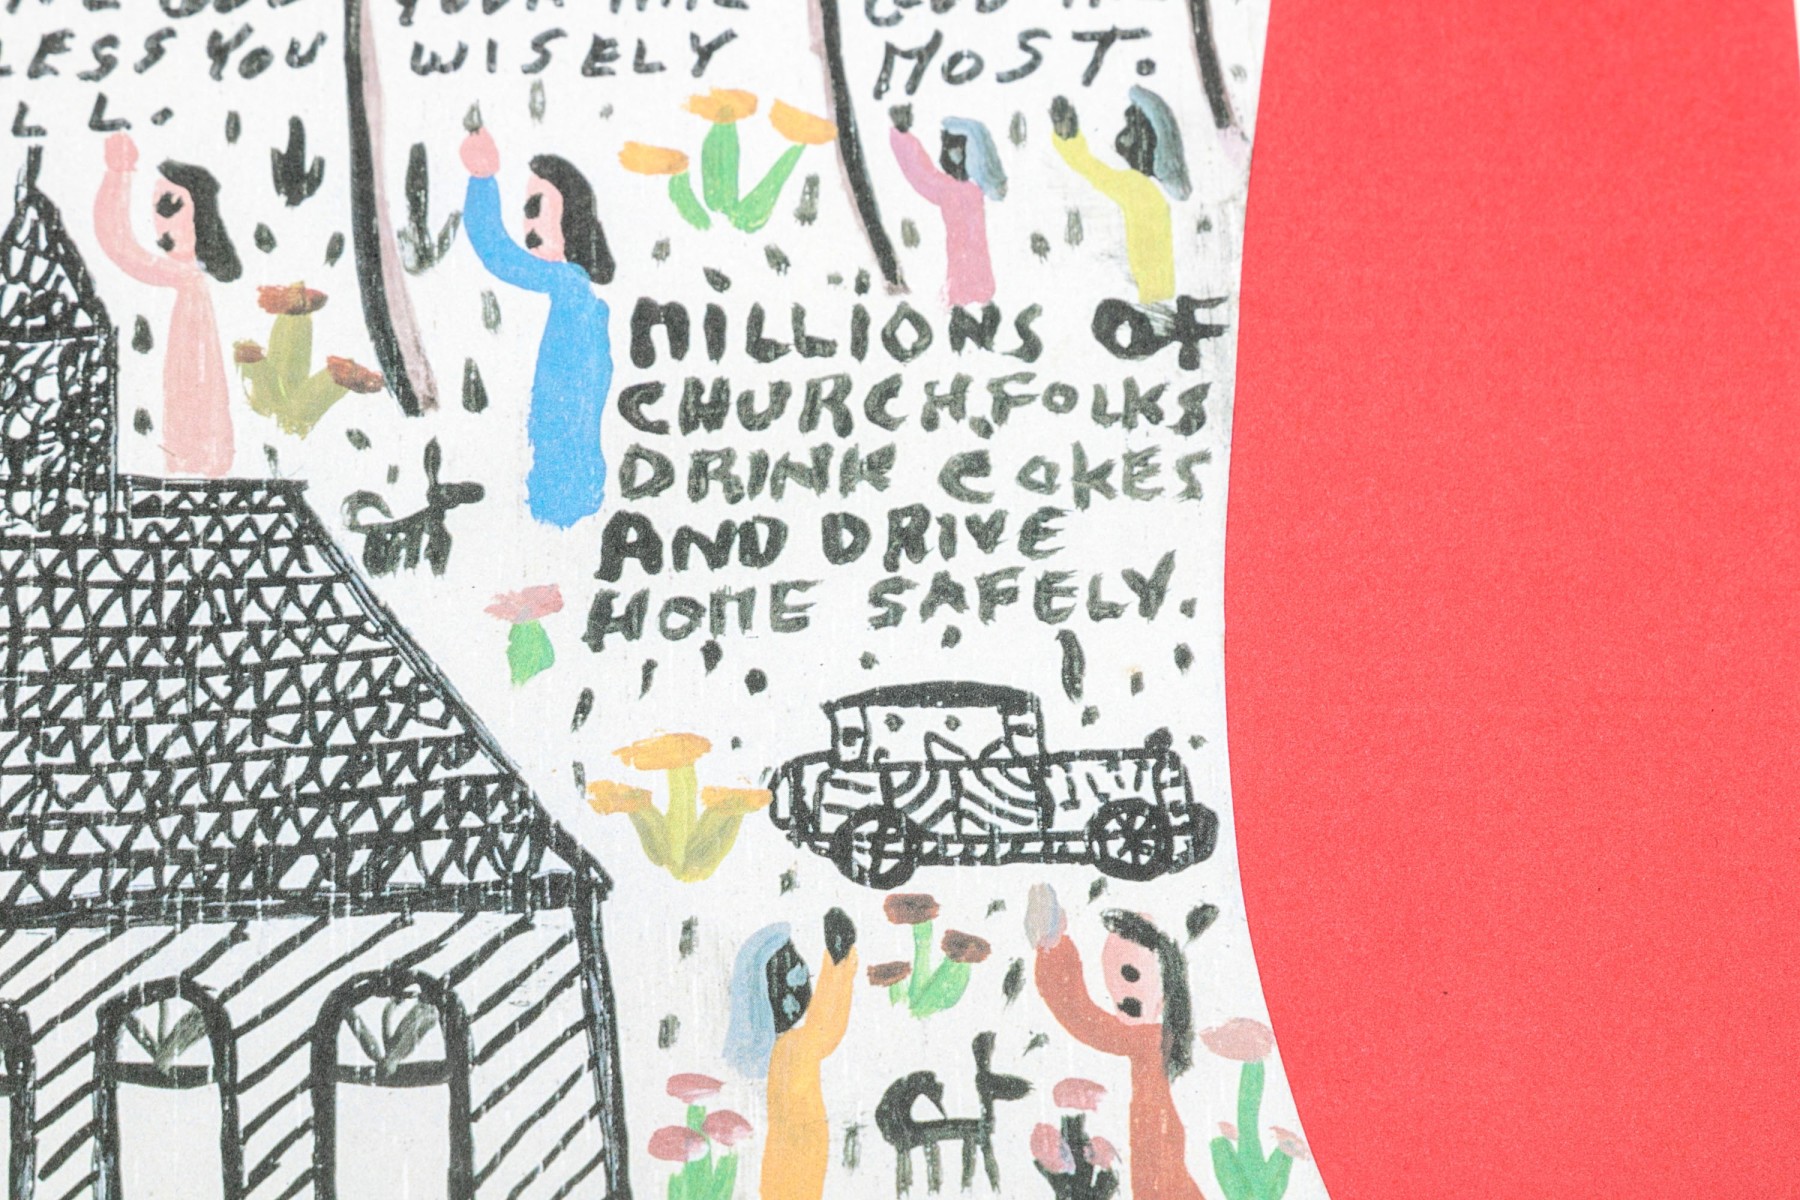 LESS YOU
LL.
WISELY
MOST.
MILLIONS OF
CHURCH.FOLKS
DRINK COKES
AND DRIVE
HOME SAFELY.